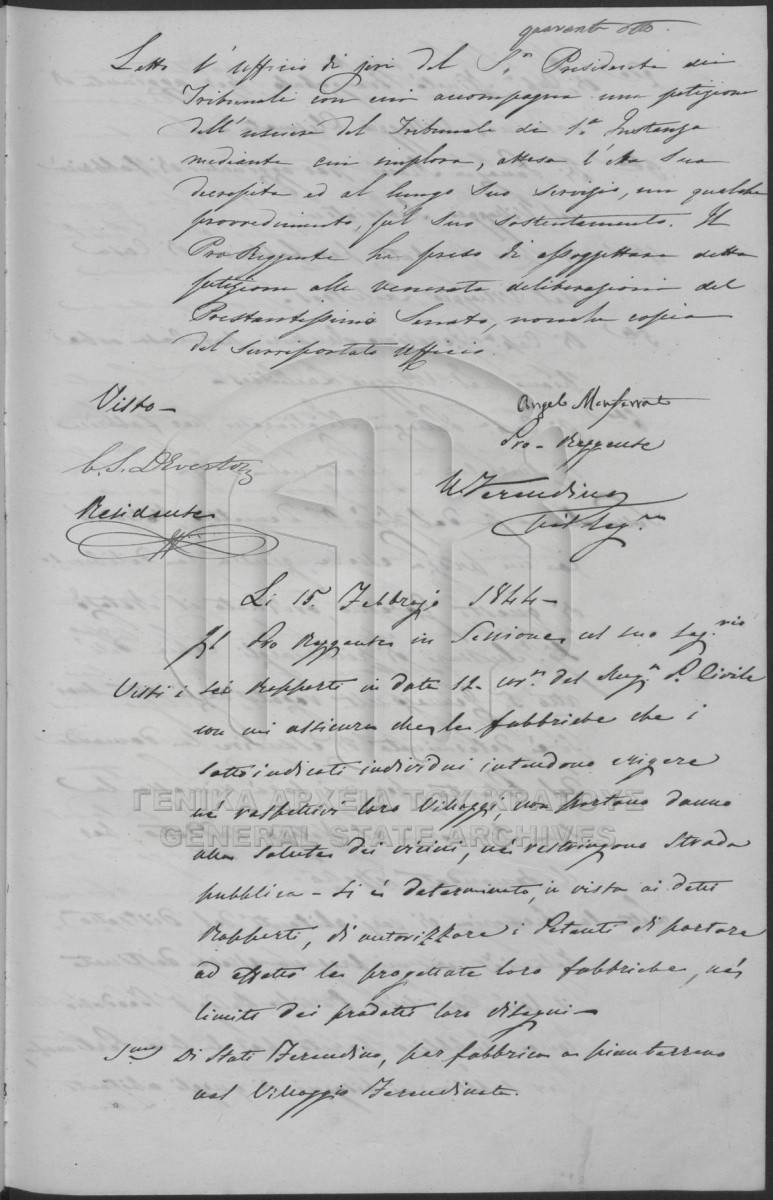 quarant'otto.
Letto l'ufficio di jeri del S.r Presidente dei
Tribunali con cui accompagna una petizione
dell'usciere del Tribunale di 1.a Instanza
mediante cui implora, attesa l'età sua
decrepita ed al lungo suo servizio, un qualche
provvedimento, pel suo sostentamento. Il
Pro Reggente ha preso di assoggettare detta
petizione alle venerate deliberazioni del
Prestantissimo Senato, nonché copia
del surriportato ufficio.
Visto
Angelo Monferrato
Pro-Reggente
Residente
Li 15. Febbrajo 1844
Il Pro Reggente in Sessione col suo Seg.rio
Visti i sei Rapporti in data 12. cor.te del P. Civile
con cui assicura che le fabbriche che i
sotto indicati individui intendono erigere
né respettivi loro Villaggi, non portano danno
alla salute dei vicini, né restringono Strada
pubblica - Si è determinato, in vista ai detti
Rapporti, di autorizzare i Petenti di portare
ad effetto le progettate loro fabbriche, né
limiti dei prodotti loro disegni
Di Stati Terendino, per fabbrica a pianterreno
nel Villaggio Terendinata.
ΓΕΝΙΚΑ ΑΡΧΕΙΑ ΤΟΥ ΚΡΑΤΟΥΣ
GENERAL STATE ARCHIVES